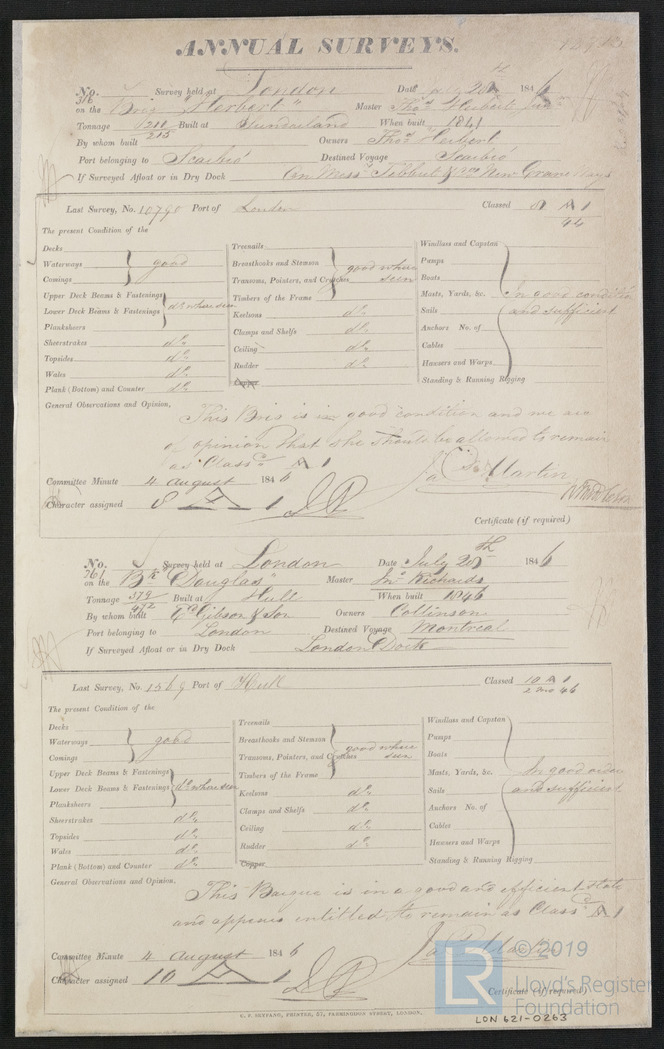 ANNUAL SURVEYS.
No. 316 Survey held at London Date July 28th 1846
on the Brig "Herbert" Master Thos Herbert
Tonnage 211 215 Built at Sunderland When built 1841
By whom built Owners Thos Herbert
Port belonging to Scarbro' Destined Voyage Scarbro'
If Surveyed Afloat or in Dry Dock On Messrs
Last Survey, No. 10798 Port of London Classed 8 A 1
44
The present Condition of the
Decks
Waterways good
Comings
Upper Deck Beams & Fastenings
Lower Deck Beams & Fastenings do where seen
Planksheers
Sheerstrakes do
Topsides do
Wales do
Plank (Bottom) and Counter do
Treenails
Breasthooks and Stemson good where seen
Transoms, Pointers, and Crutches
Timbers of the Frame
Keelsons do
Clamps and Shelfs do
Ceiling do
Rudder do
Copper
Windlass and Capstan
Pumps
Boats
Masts, Yards, &c. In good condition
Sails and sufficient
Anchors No. of
Cables
Hawsers and Warps
Standing & Running Rigging
General Observations and Opinion,
This Brig is in good condition and we are
of opinion that she should be allowed to remain
as Class A 1
Martin
Committee Minute 4 August 1846
Character assigned 8 A 1
Certificate (if required)
No. 761 Survey held at London Date July 28th 1846
on the Bk "Douglas" Master Jno Richards
Tonnage 379 472 Built at Hull When built 1846
By whom built Gibson & Son Owners Collinson
Port belonging to London Destined Voyage Montreal
If Surveyed Afloat or in Dry Dock London Dock
Last Survey, No. 1569 Port of Hull Classed 10 A 1
2 mo 46
The present Condition of the
Decks
Waterways good
Comings
Upper Deck Beams & Fastenings
Lower Deck Beams & Fastenings do where seen
Planksheers
Sheerstrakes do
Topsides do
Wales do
Plank (Bottom) and Counter do
Treenails
Breasthooks and Stemson good where seen
Transoms, Pointers, and Crutches
Timbers of the Frame
Keelsons do
Clamps and Shelfs do
Ceiling do
Rudder do
Copper
Windlass and Capstan
Pumps
Boats
Masts, Yards, &c. In good order
Sails and sufficient
Anchors No. of
Cables
Hawsers and Warps
Standing & Running Rigging
General Observations and Opinion,
This Barque is in a good and efficient state
and appears entitled to remain as Class A 1
Committee Minute 4 August 1846
Character assigned 10 A 1
Certificate (if required)
LR ©2019
Lloyd's Register
Foundation
LON 621-0263